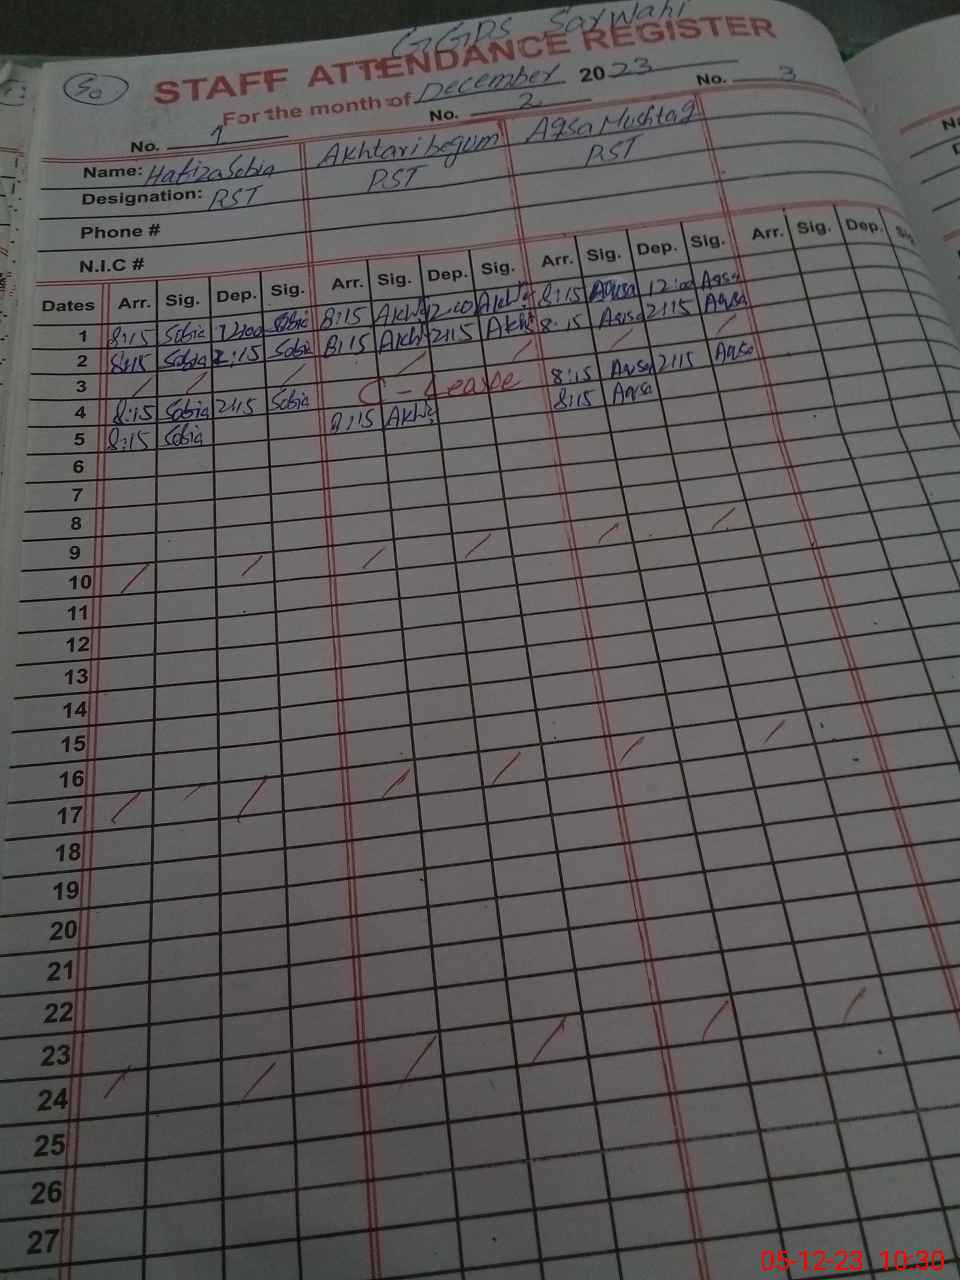 GGPS Sarwahi
50
STAFF ATTENDANCE REGISTER
For the month of December 2023
No. 1 No. 2 No. 3
Name: Hafiza Sobia Akhtari begum Aqsa Mushtaq
Designation: PST PST PST
Phone #
N.I.C #
Dates Arr. Sig. Dep. Sig. Arr. Sig. Dep. Sig. Arr. Sig. Dep. Sig. Arr. Sig. Dep. Sig.
1 8:15 Sobia 12:00 Sobia 8:15 Akht 12:00 Akht 8:15 Aqsa 12:00 Aqsa
2 8:15 Sobia 2:15 Sobia 8:15 Akht 2:15 Akht 8:15 Aqsa 2:15 Aqsa
3
4 8:15 Sobia 2:15 Sobia C - Leave 8:15 Aqsa 2:15 Aqsa
5 8:15 Sobia 8:15 Akht 8:15 Aqsa
6
7
8
9
10
11
12
13
14
15
16
17
18
19
20
21
22
23
24
25
26
27
05-12-23 10:30